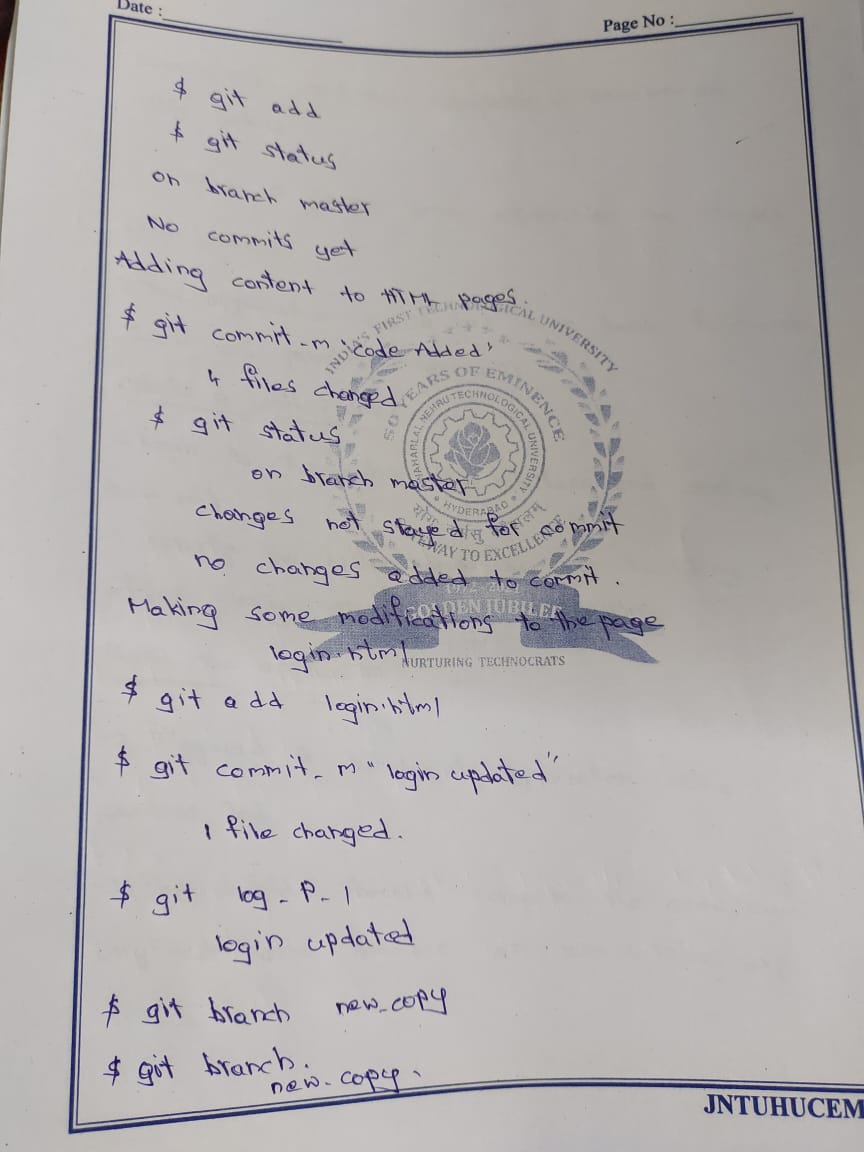 Date :
Page No :
$ git add
$ git status
on branch master
No commits yet
Adding content to HTML pages.
$ git commit -m 'code Added'
4 files changed
$ git status
on branch master
changes not stayed for commit
no changes added to commit.
Making some modifications to the page
login.html
$ git add login.html
$ git commit - m "login updated"
1 file changed.
$ git log - P - 1
login updated
$ git branch new_copy
$ git branch.
new - copy.
INDIA'S FIRST TECHNOLOGICAL UNIVERSITY
50 YEARS OF EMINENCE
JAWAHARLAL NEHRU TECHNOLOGICAL UNIVERSITY
HYDERABAD
GOLDEN JUBILEE
NURTURING TECHNOCRATS
JNTUHUCEM